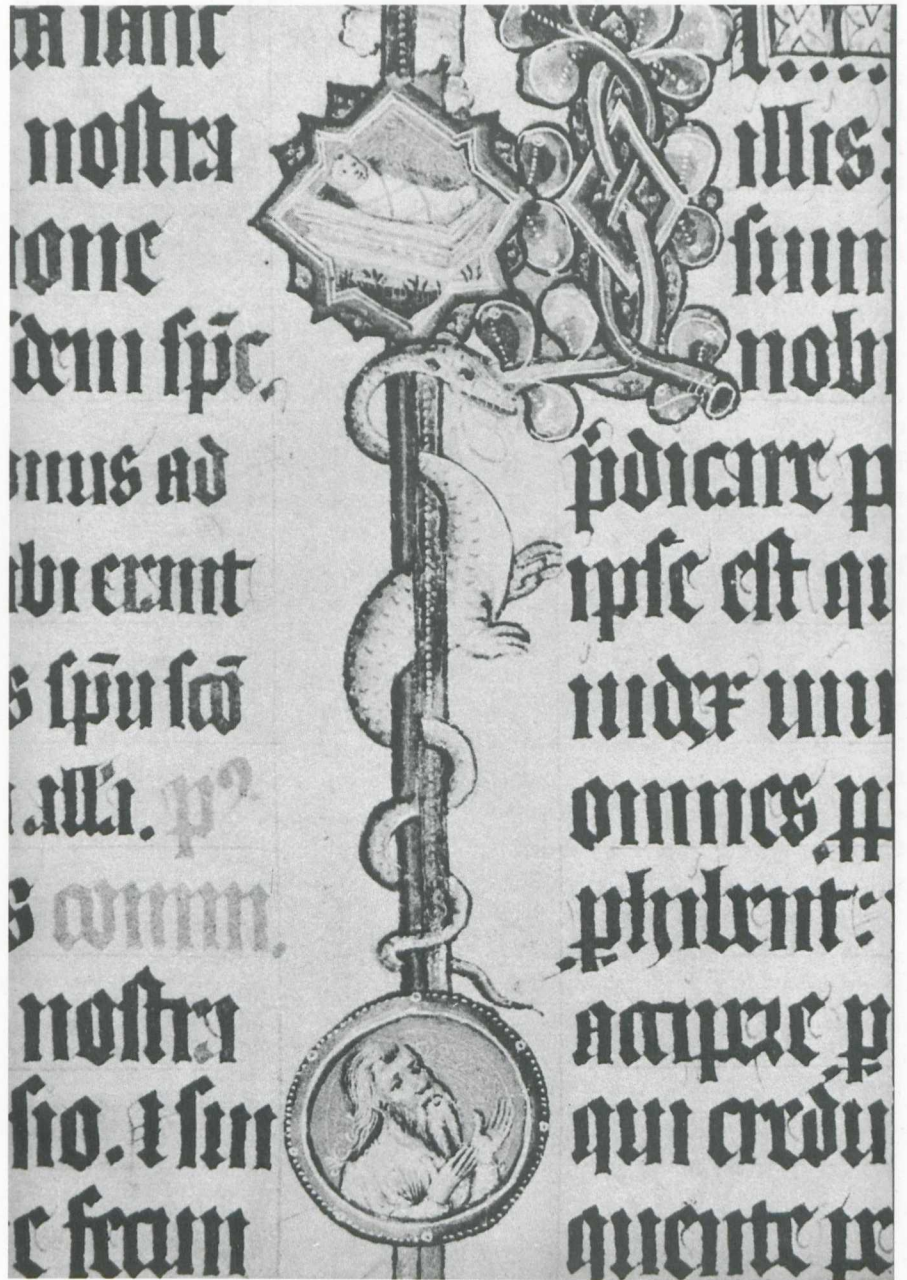 ca ſanc
noſtra
one
dem ſp̄c.
nus ad
bi erunt
s ſp̄u ſc̄o
.all'a. p'
s comun.
noſtra
ſio. I ſin
e ſecun
illis:
ſum
nobi
p̄dicare p
ipſe eſt qu
iudex uiu
omnes p
phibent:
accipere p
qui credu
quente pe